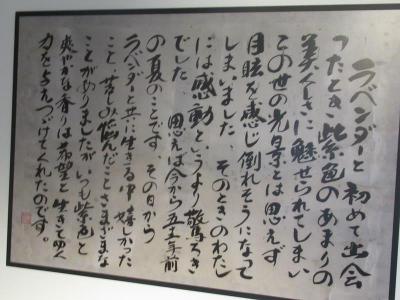 ラベンダーと初めて出会
ったとき紫色のあまりの
美くしさに魅せられてしまい
この世の光景とは思えず
目眩を感じ倒れそうになって
しまいました、そのときのわたし
には感動というより驚ろき
でした、思えば今から五十年前
の夏のことです、その日から
ラベンダーと共に生きる中嬉しかった
こと苦しみ悩んだことさまざまな
ことがありましたがいつも紫色と
爽やかな香りは希望と生きてゆく
力を与えつづけてくれたのです。